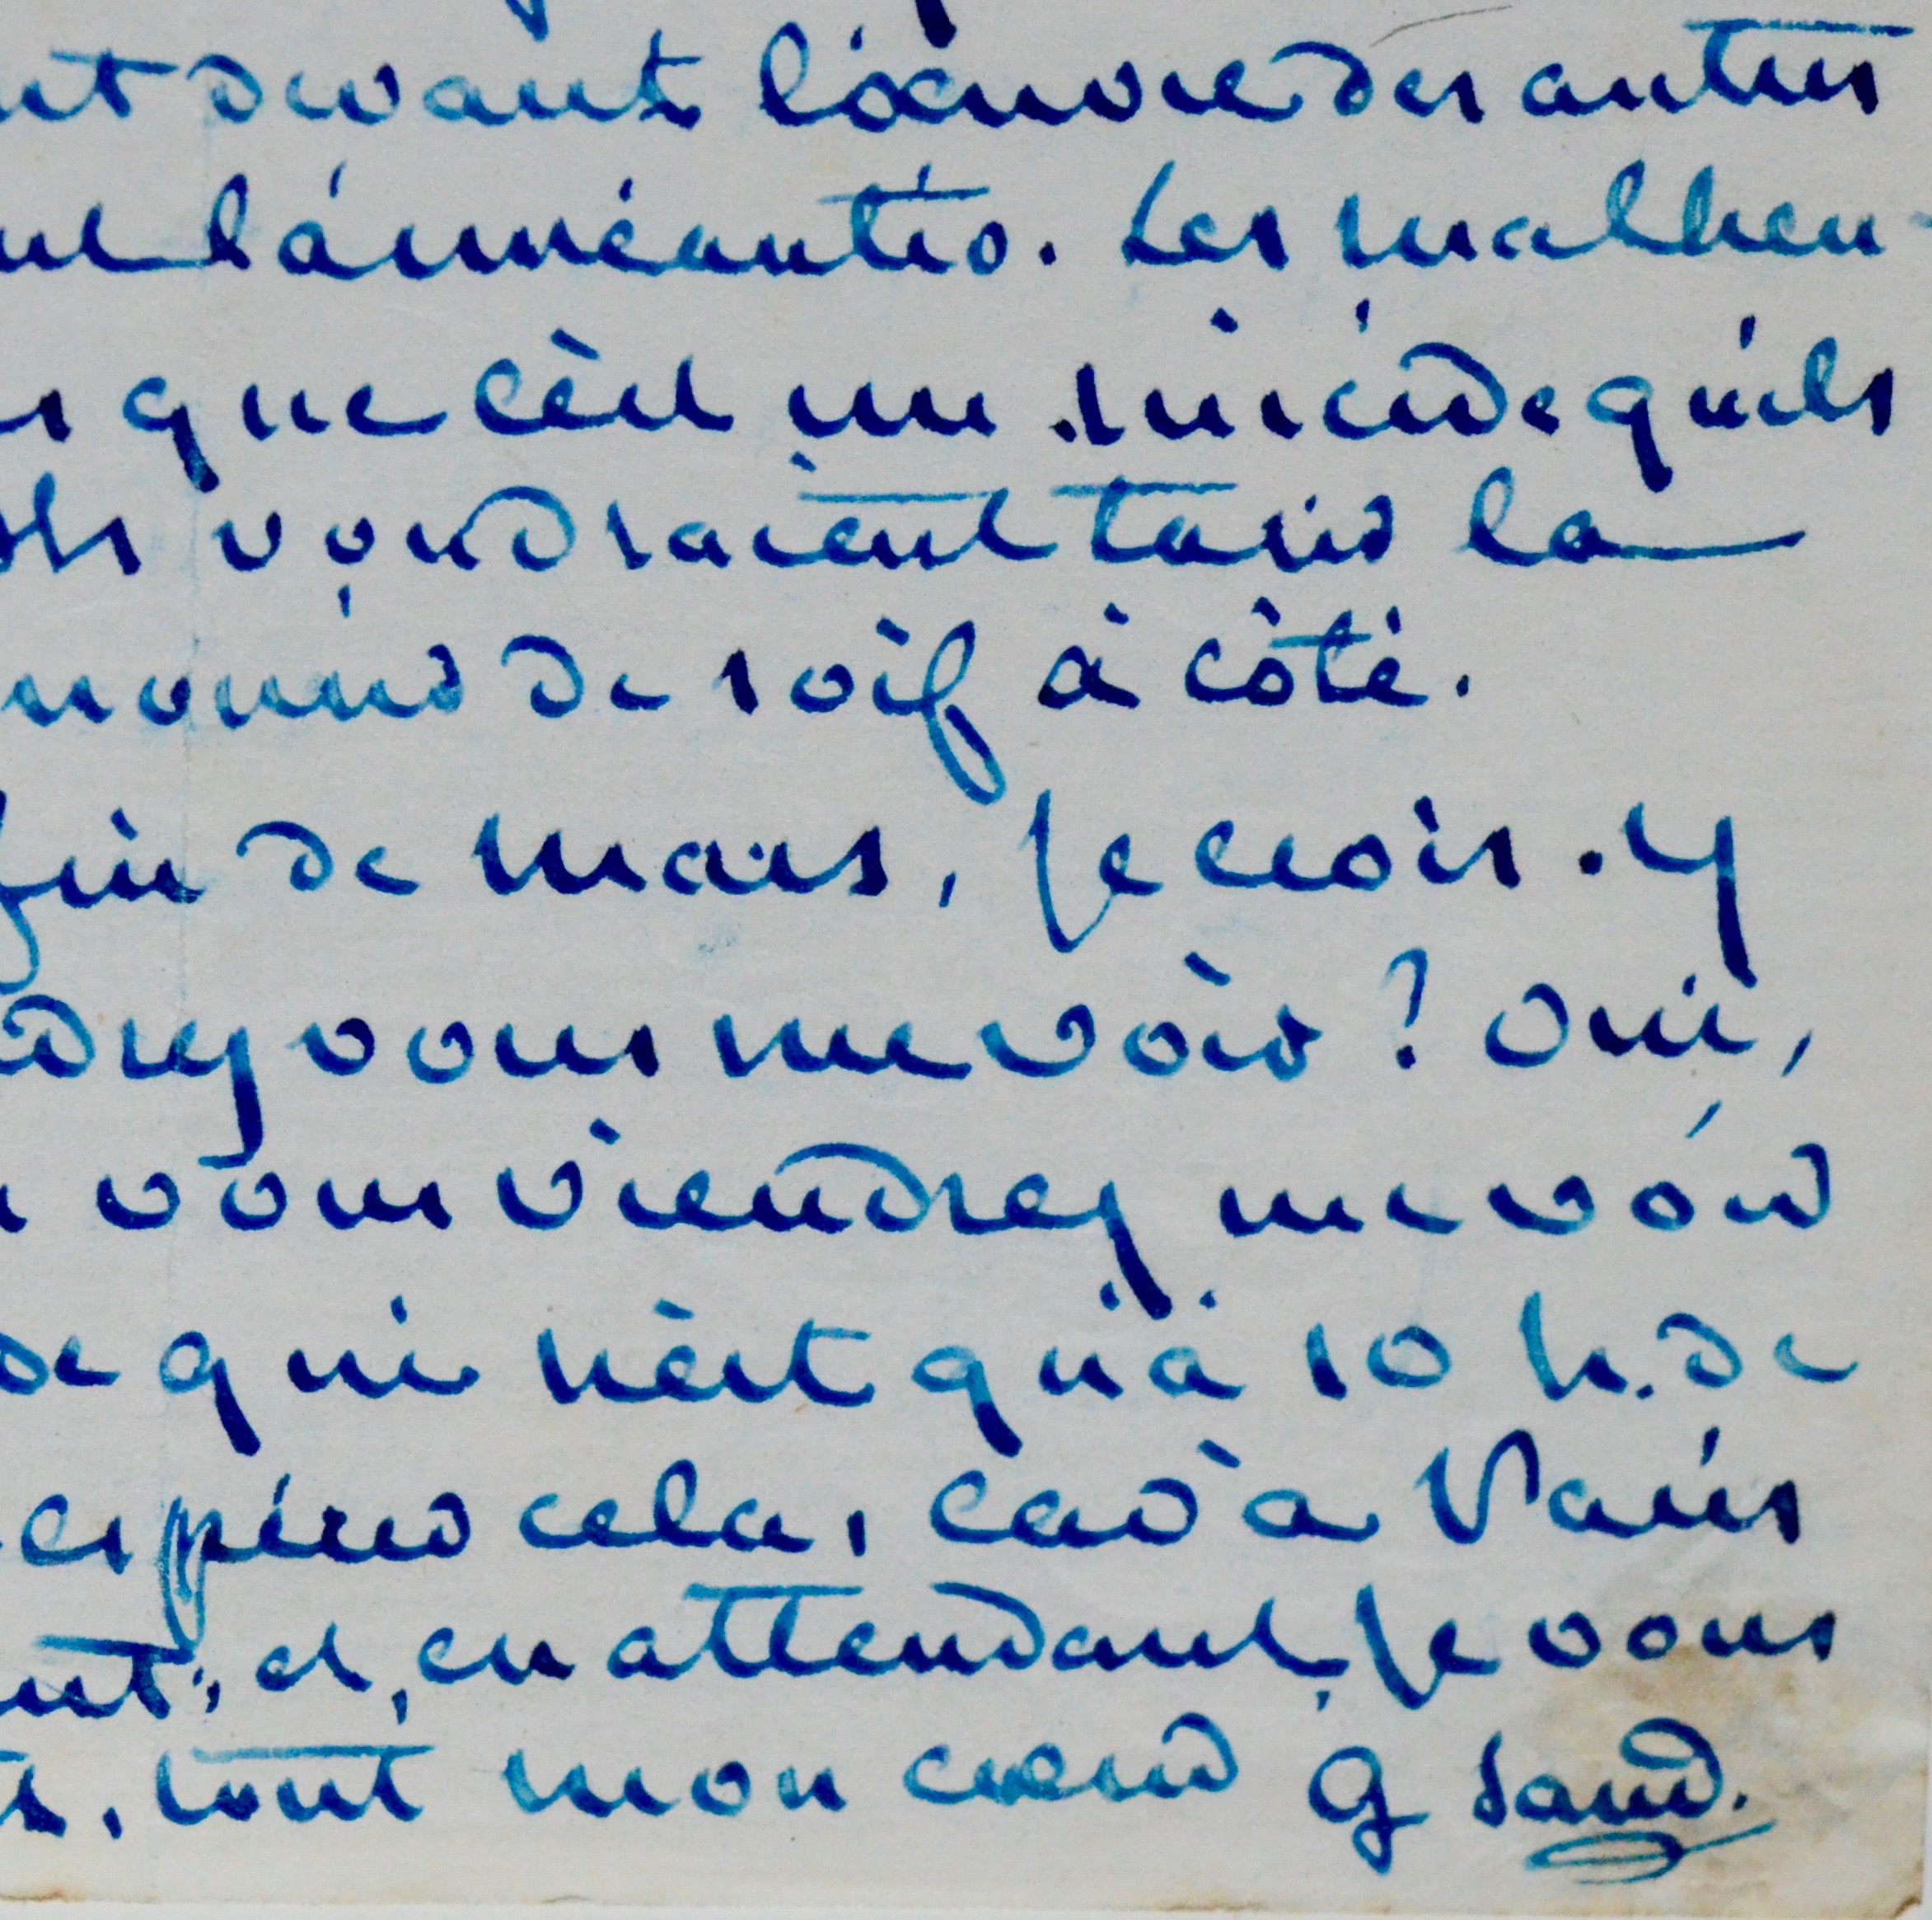 nt devant l'oeuvre des autres
ent l'anéantir. Les malheu-
s que c'est un suicide qu'ils
ils voudraient tarir la
mourir de soif à côté.
fin de mars, je crois. Y
drez vous me voir ? Oui,
vous viendrez me voir
de qui n'est qu'à 10 h. de
espérer cela, car à Paris
ent; et, en attendant, je vous
tout mon coeur G Sand.